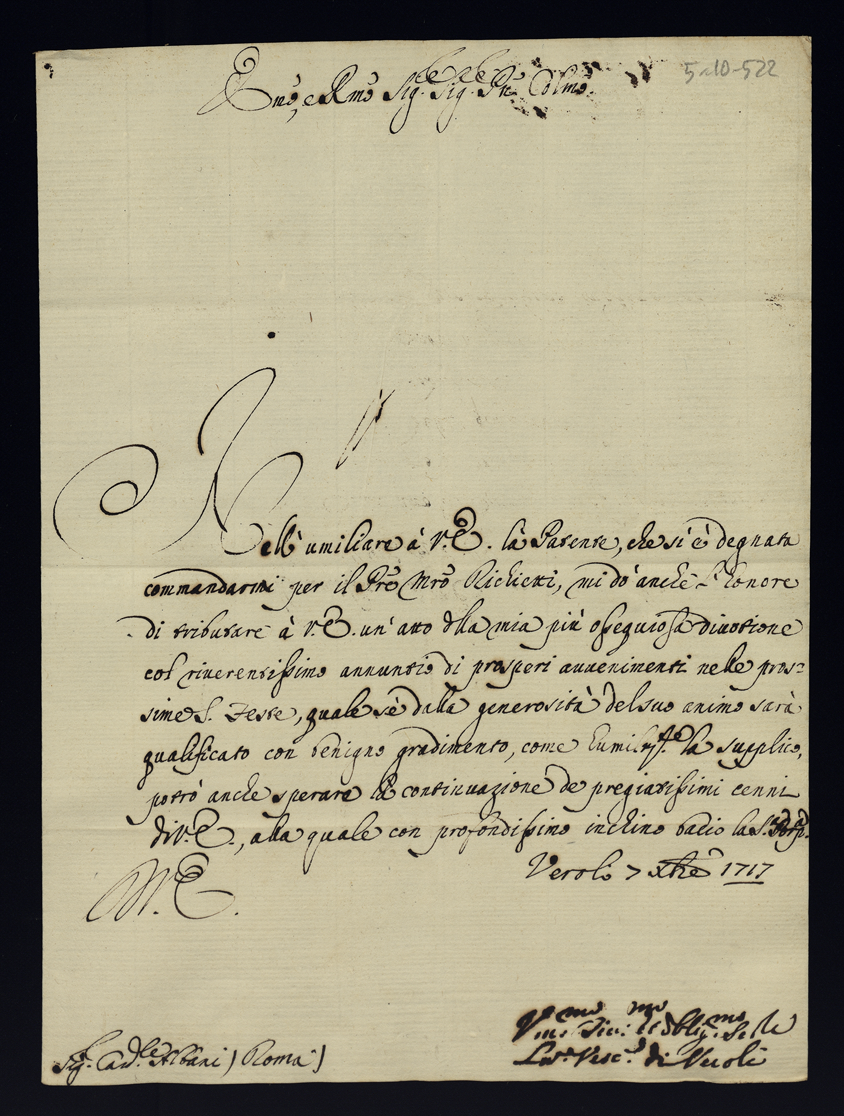 5-10-522
Em̃o, e Rm̃o Sig.re Sig.re Pñ. Colm̃o.
Nell' umiliare à V.E. la Patente, che si è degnata
commandarmi per il Prẽ Mrõ Richietti, mi do' anche l'honore
di tributare à V.E. un' atto d'lla mia più ossequiosa divotione
col riverentissimo annuntio di prosperi avvenimenti nelle pros=
sime S. Feste, quale se dalla generosità del suo animo sarà
qualificato con benigno gradimento, come humilis.te la supplico,
potrò anche sperare la continuazione de pregiatissimi cenni
di V.E., alla quale con profondissimo inchino bacio la S.
Veroli 7 Xbrẽ 1717
V.E.
Sig.r Card.le Albani / Roma /
V.mo Div.mo et Obblig.mo Se.re
Vesc.o di Veroli